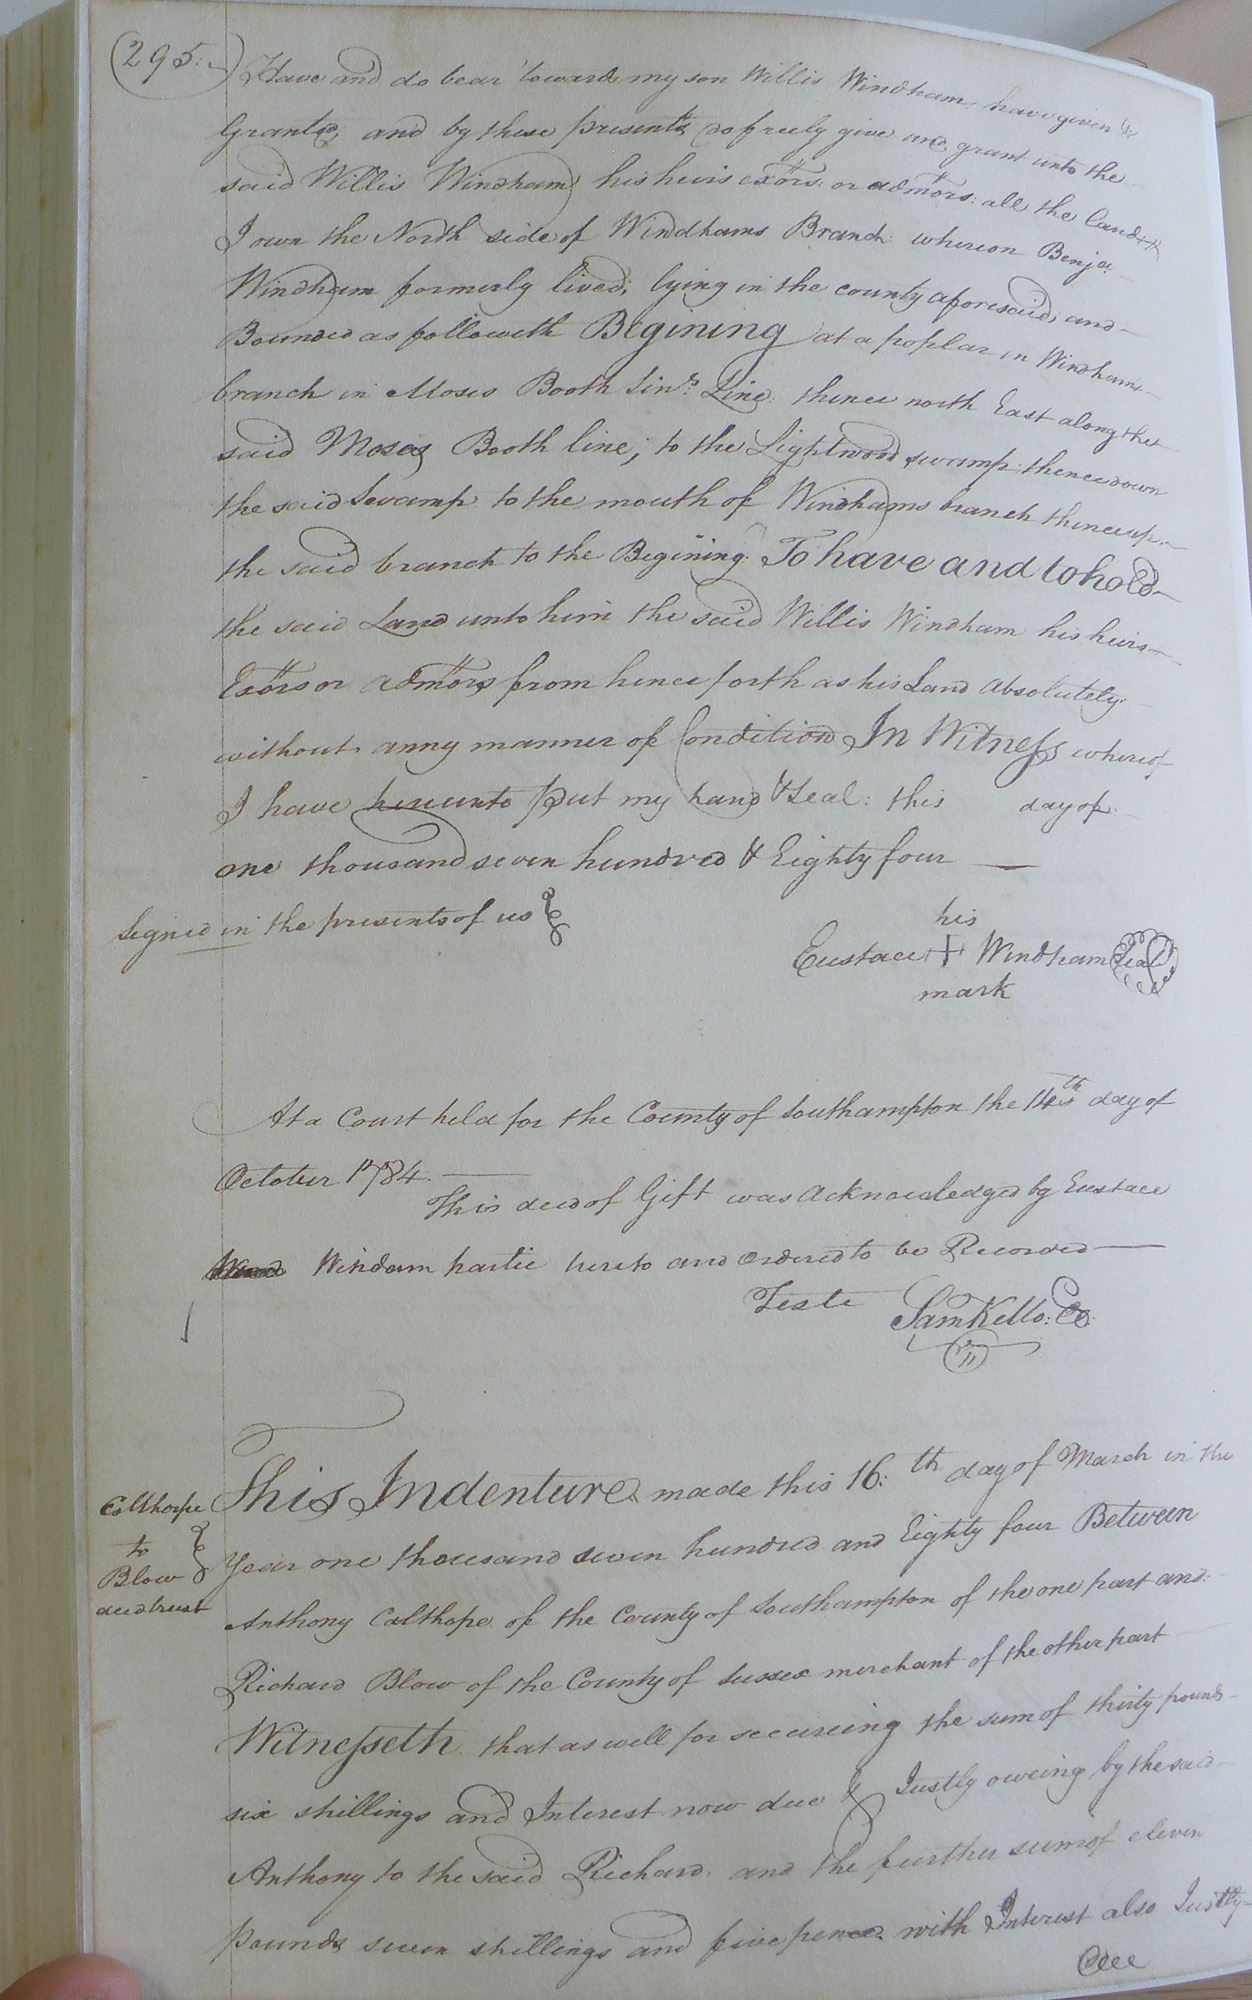 295
Have and do bear towards my son Willis Windham have given &
Granted, and by these presents do freely give and grant unto the
said Willis Windham his heirs exōrs: or admōrs: all the Land
I own the North side of Windhams Branch whereon Benja.
Windham formerly lived, lying in the county aforesaid, and
Bounded as followeth Begining at a poplar in Windhams
branch in Moses Booth Sinr. Line: thence north East along the
said Moses Booth line, to the Lightwood swamp: thence down
the said Swamp to the mouth of Windhams branch thence up
the said branch to the Begining: To have and to hold
the said Land unto him the said Willis Windham his heirs
Exōrs or admōrs from hence forth as his Land Absolutely
without anny manner of Condition In Witness whereof
I have hereunto put my hand & Seal: this day of
one thousand seven hundred & Eighty four
Signed in the presents of us
his
Eustace + Windham Seal
mark
At a Court held for the County of Southampton the 14th day of
October 1784.
This deed of Gift was Acknowledged by Eustace
Windam partie hereto and ordered to be Recorded
Teste Sam Kello: Cl:
Calthorpe
to
Blow
deed trust
This Indenture made this 16:th day of March in the
Year one thousand seven hundred and Eighty four Between
Anthony Calthope of the County of Southampton of the one part and
Richard Blow of the County of Sussex merchant of the other part
Witnesseth that as well for secureing the sum of thirty pounds
six shillings and Interest now due & Justly oweing by the said
Anthony to the said Richard and the further sum of eleven
Pounds seven shillings and five pence with Interest also Justly